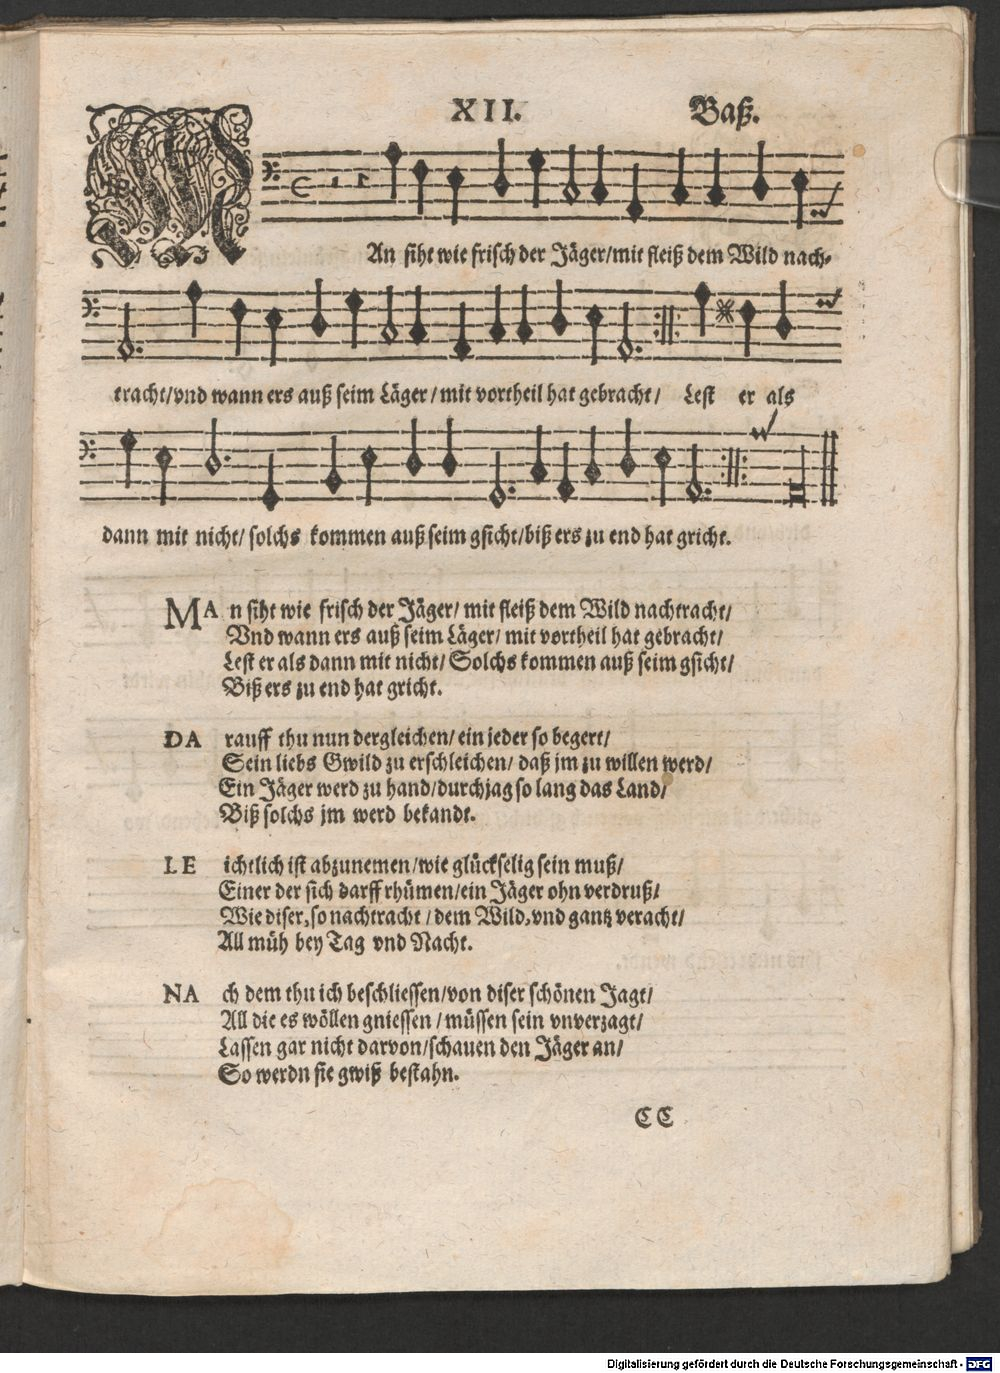 XII. Baß.
MAn siht wie frisch der Jäger/mit fleiß dem Wild nach-
tracht/vnd wann ers auß seim Läger/mit vortheil hat gebracht/ Lest er als
dann mit nicht/ solchs kommen auß seim gsicht/biß ers zu end hat gricht.
MAn siht wie frisch der Jäger/ mit fleiß dem Wild nachtracht/
Vnd wann ers auß seim Läger/ mit vortheil hat gebracht/
Lest er als dann mit nicht/ Solchs kommen auß seim gsicht/
Biß ers zu end hat gricht.
DArauff thu nun dergleichen/ ein jeder so begert/
Sein liebs Gwild zu erschleichen/ daß jm zu willen werd/
Ein Jäger werd zu hand/durchjag so lang das Land/
Biß solchs jm werd bekandt.
LEichtlich ist abzunemen/wie glückselig sein muß/
Einer der sich darff rhümen/ein Jäger ohn verdruß/
Wie diser, so nachtracht/ dem Wild, vnd gantz veracht/
All müh bey Tag vnd Nacht.
NAch dem thu ich beschliessen/von diser schönen Jagt/
All die es wöllen gniessen/ müssen sein vnverzagt/
Lassen gar nicht darvon/schauen den Jäger an/
So werdn sie gwiß bestahn.
CC
Digitalisierung gefördert durch die Deutsche Forschungsgemeinschaft - DFG